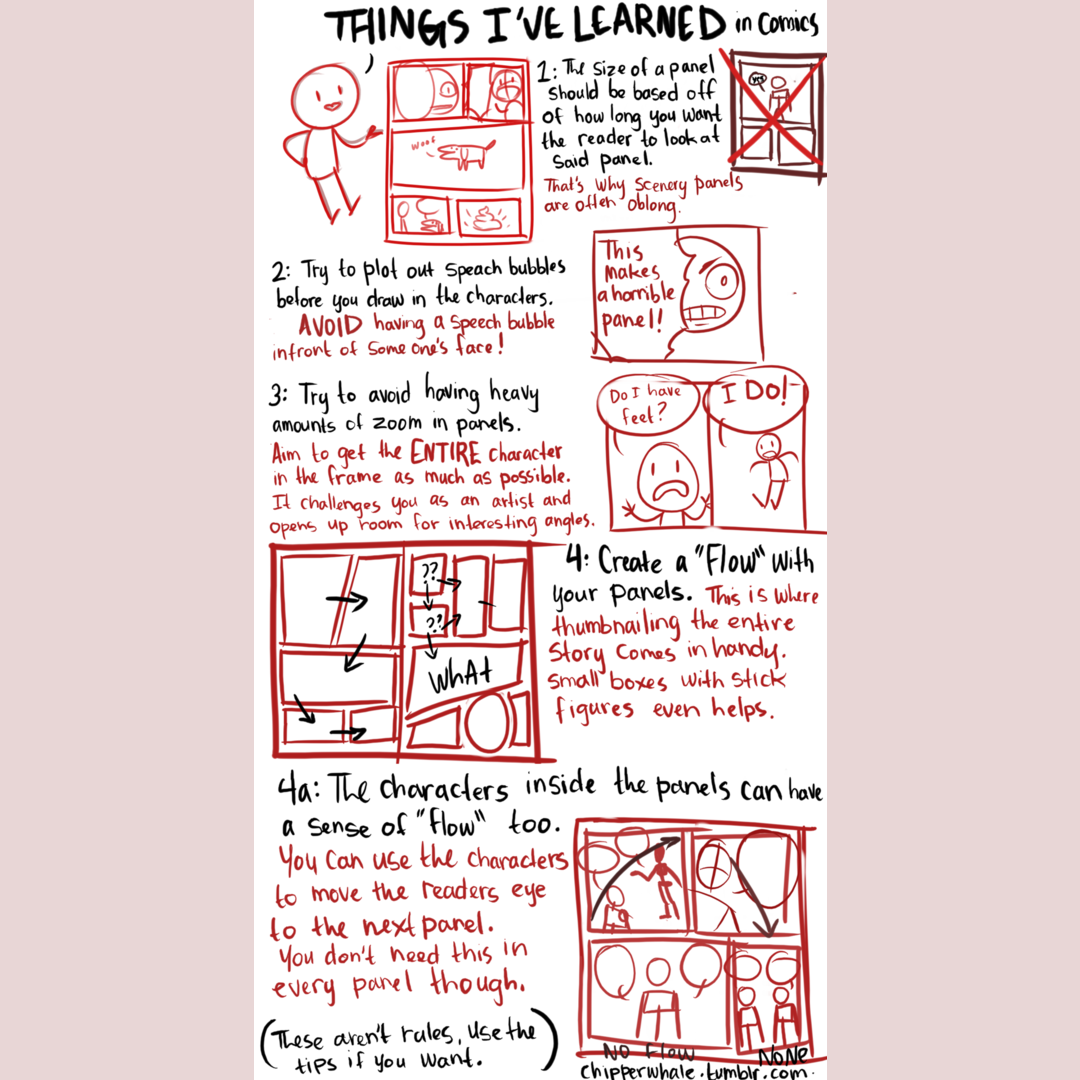 THINGS I'VE LEARNED in Comics
1: The Size of a panel
should be based off
of how long you want
the reader to look at
said panel.
That's why scenery panels
are often oblong.
YES
woof
2: Try to plot out speach bubbles
before you draw in the characters.
AVOID having a speech bubble
infront of someone's face!
This
makes
a horrible
panel!
3: Try to avoid having heavy
amounts of zoom in panels.
Aim to get the ENTIRE character
in the frame as much as possible.
It challenges you as an artist and
opens up room for interesting angles.
Do I have
feet?
I DO!
??
??
WhAt
4: Create a "Flow" with
your panels. This is where
thumbnailing the entire
story comes in handy.
small boxes with stick
figures even helps.
4a: The characters inside the panels can have
a sense of "flow" too.
You can use the characters
to move the readers eye
to the next panel.
You don't need this in
every panel though.
(These aren't rules, use the
tips if you want.)
NO Flow
NoNe
chipperwhale.tumblr.com.